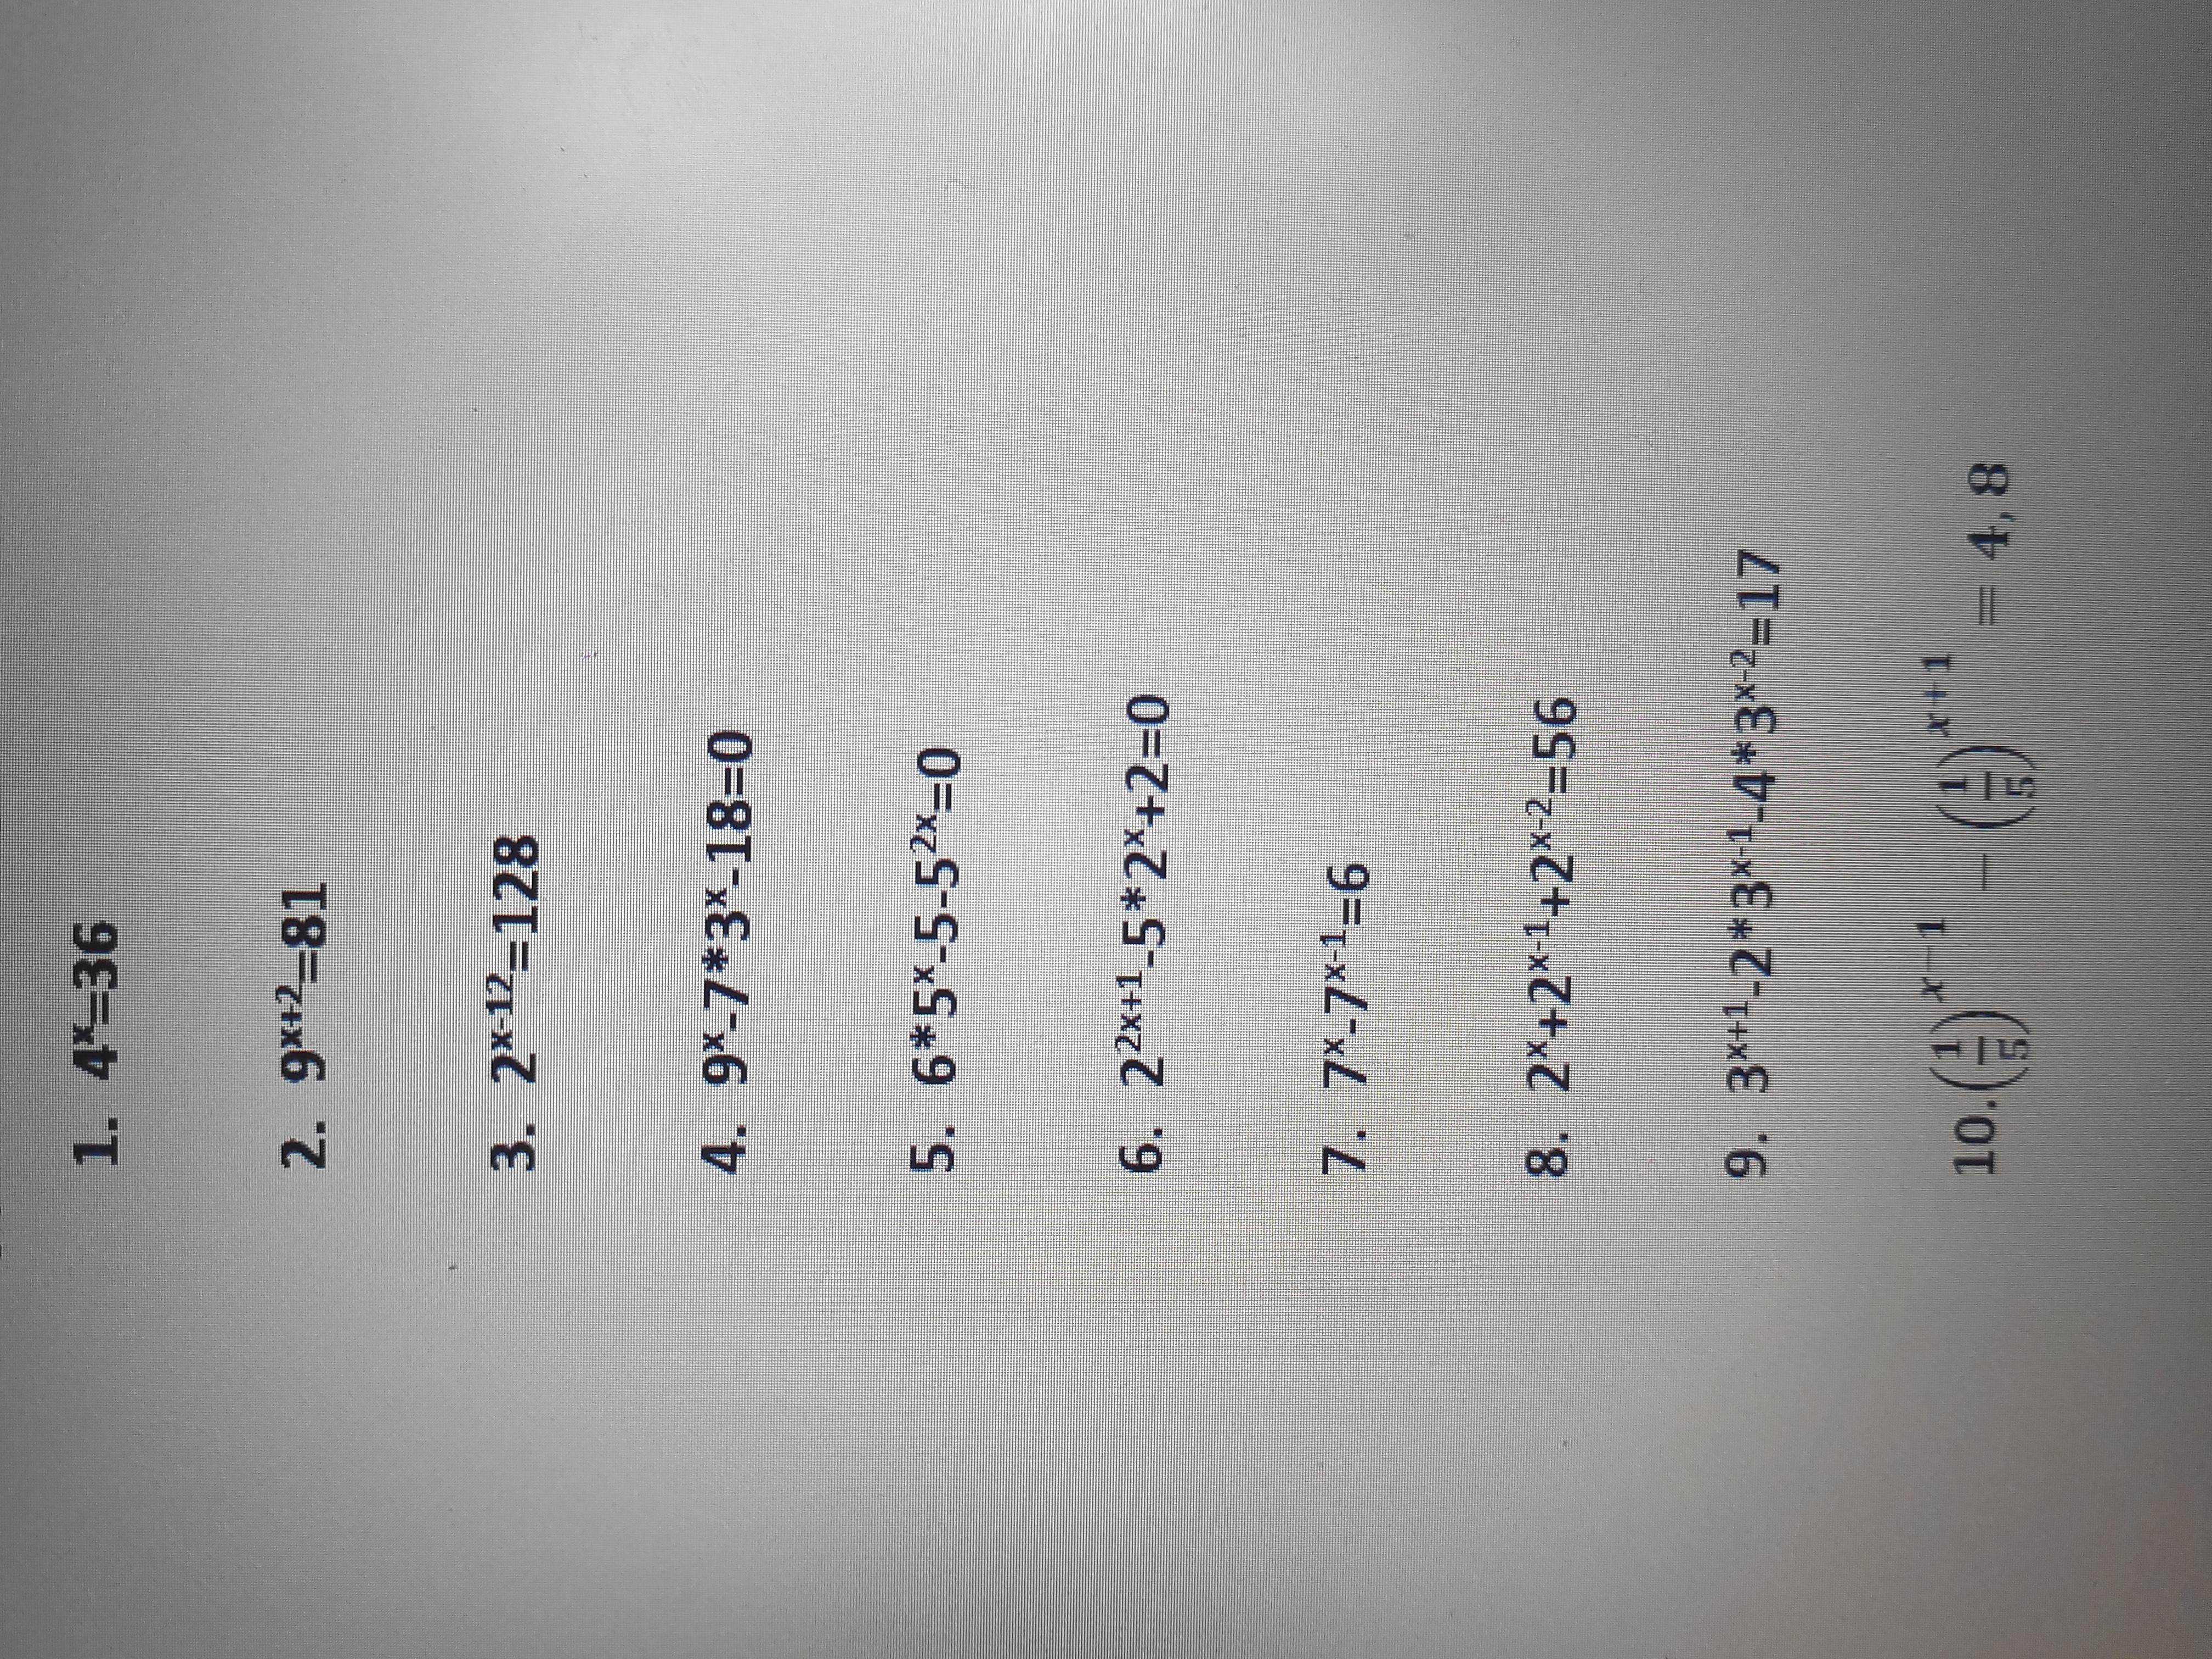 1. 4ˣ=36
2. 9ˣ⁺²=81
3. 2ˣ⁻¹²=128
4. 9ˣ-7*3ˣ-18=0
5. 6*5ˣ-5-5²ˣ=0
6. 2²ˣ⁺¹-5*2ˣ+2=0
7. 7ˣ-7ˣ⁻¹=6
8. 2ˣ+2ˣ⁻¹+2ˣ⁻²=56
9. 3ˣ⁺¹-2*3ˣ⁻¹-4*3ˣ⁻²=17
10. (1/5)ˣ⁻¹ − (1/5)ˣ⁺¹ = 4,8